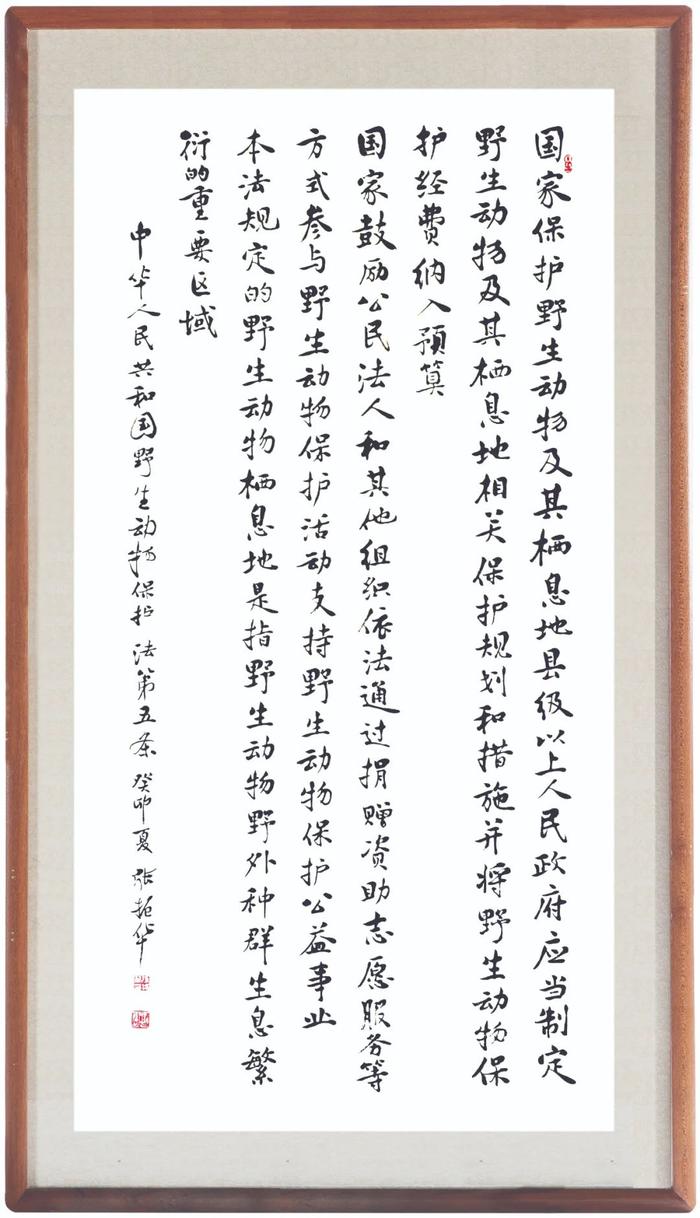 国家保护野生动物及其栖息地县级以上人民政府应当制定
野生动物及其栖息地相关保护规划和措施并将野生动物保
护经费纳入预算
国家鼓励公民法人和其他组织依法通过捐赠资助志愿服务等
方式参与野生动物保护活动支持野生动物保护公益事业
本法规定的野生动物栖息地是指野生动物野外种群生息繁
衍的重要区域
中华人民共和国野生动物保护法第五条 癸卯夏 张振华